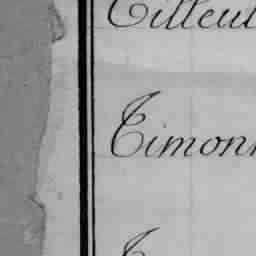 Tilleul
Timon
T